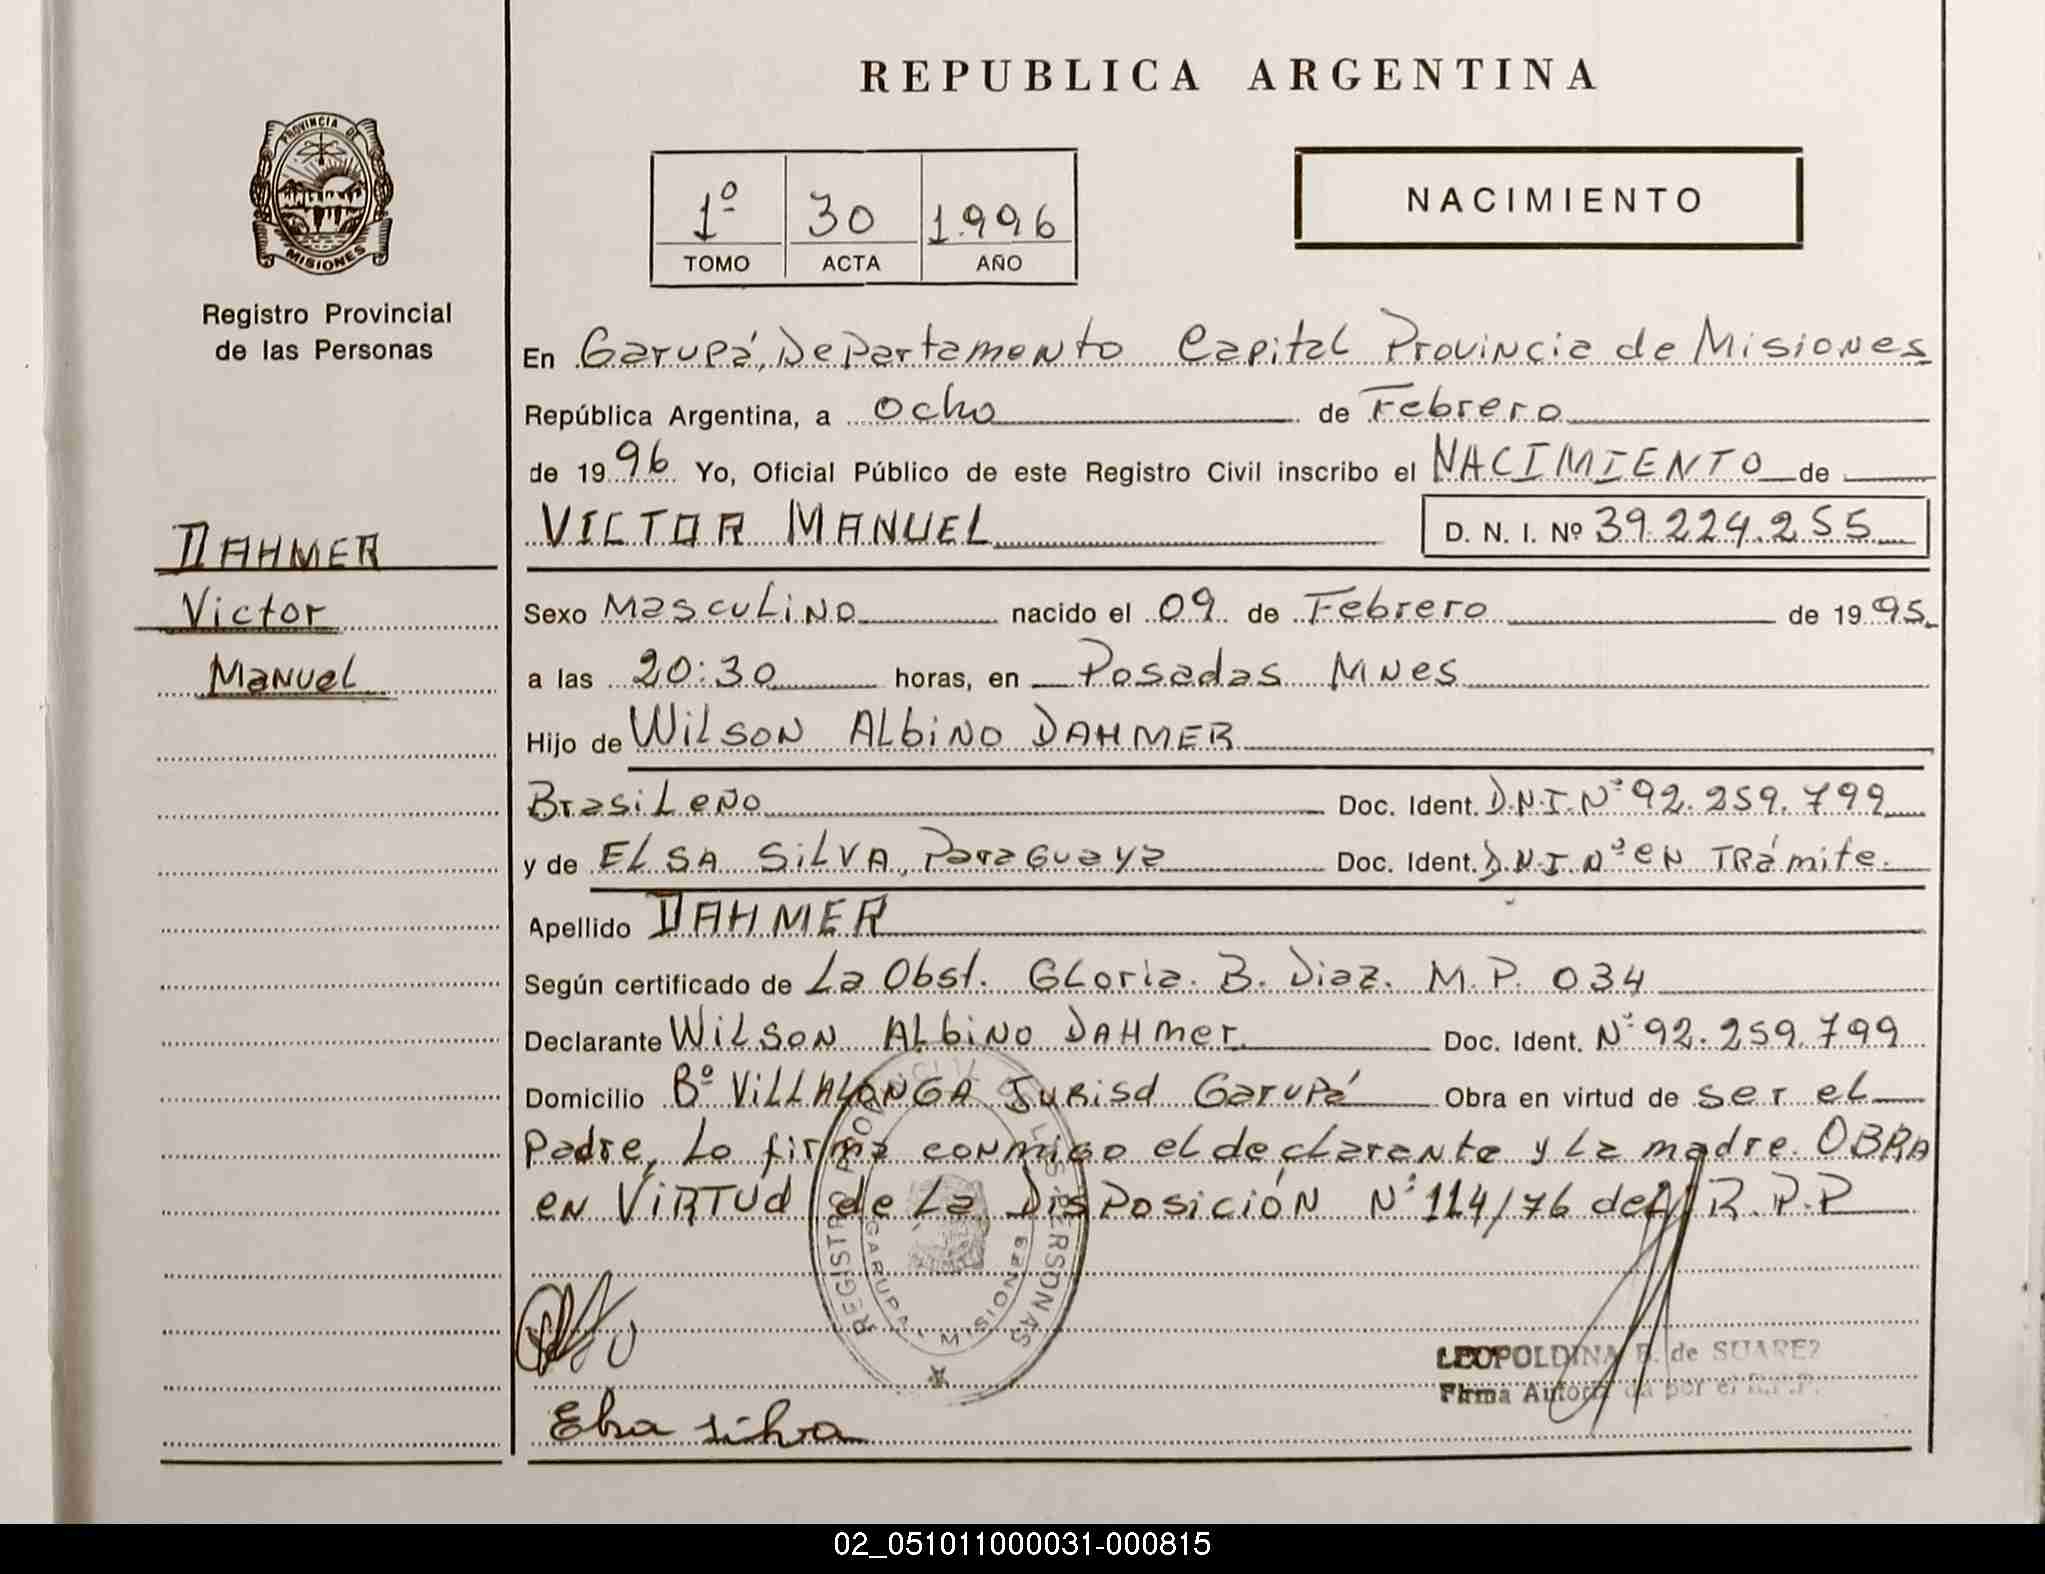 REPUBLICA ARGENTINA
PROVINCIA DE
MISIONES
Registro Provincial
de las Personas
1º 30 1.996
TOMO ACTA AÑO
NACIMIENTO
En Garupá, Departamento Capital Provincia de Misiones
República Argentina, a ocho de Febrero
de 1996 Yo, Oficial Público de este Registro Civil inscribo el NACIMIENTO de
VICTOR MANUEL D. N. I. Nº 39.224.255
DAHMER
Victor
Manuel
Sexo Masculino nacido el 09 de Febrero de 1995
a las 20:30 horas, en Posadas Mnes
Hijo de Wilson Albino DAHMER
Brasileño Doc. Ident. D.N.I.Nº 92.259.799
y de ELSA SILVA, Paraguaya Doc. Ident. D.N.I.Nº en Trámite.
Apellido DAHMER
Según certificado de La Obst. Gloria. B. Diaz. M.P. 034
Declarante Wilson Albino DAHmer. Doc. Ident. Nº 92.259.799
Domicilio Bº VILLALONGA Jurisd Garupá Obra en virtud de ser el
Padre, Lo firma conmigo el declarante y La madre. OBRA
en VIRTUD de La Disposición Nº 114/76 del R.P.P
REGISTRO PROVINCIAL DE LAS PERSONAS
GARUPA, MISIONES
LEOPOLDINA B. de SUAREZ
Firma Autorizada por el R.P.P.
Elsa silva
02_051011000031-000815